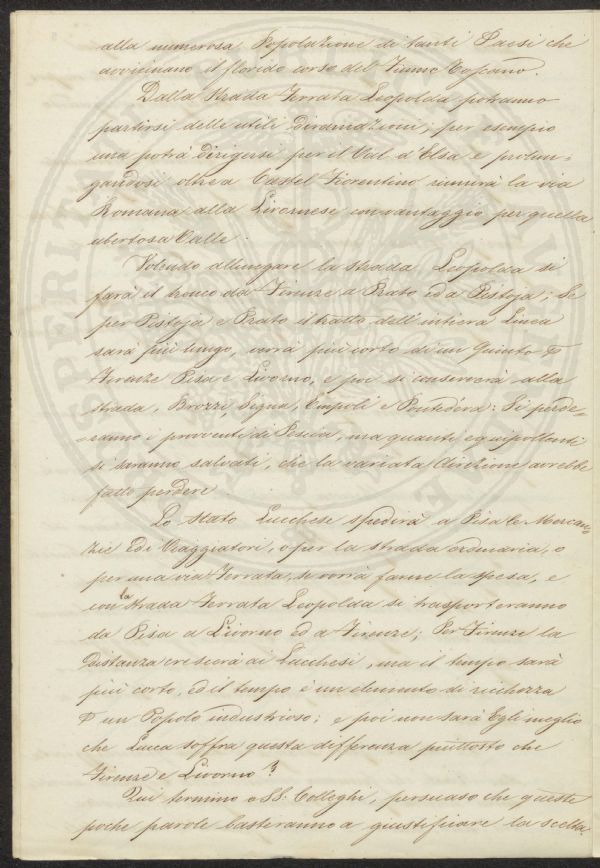 alla numerosa Popolazione di tanti Paesi che
avvicinano il florido corso del Fiume Toscano.
Dalla Strada Ferrata Leopolda potranno
partirsi delle utili diramazioni; per esempio
una potrà dirigersi per il Val d'Elsa e prolun-
gandosi oltre a Castel Fiorentino riunirà la via
Romana alla Livornese con vantaggio per quella
ubertosa Valle.
Volendo allungare la Strada Leopolda si
farà il tronco da Firenze a Prato ed a Pistoja; Se
per Pistoja e Prato il tratto dell'intiera Linea
sarà più lungo, verrà più corto di un Quinto
Firenze Pisa e Livorno, e poi si conserverà alla
Strada, Brozzi, Signa, Empoli e Pontedera: Si perde-
ranno i proventi di Pescia, ma quanti equipollenti
si saranno salvati, che la variata Direzione avrebbe
fatto perdere.
Lo Stato Lucchese spedirà a Pisa le Mercan-
zie ed i Viaggiatori, o per la strada ordinaria, o
per una via Ferrata, se vorrà farne la spesa, e
con la Strada Ferrata Leopolda si trasporteranno
da Pisa a Livorno ed a Firenze; Per Firenze la
Distanza crescerà ai Lucchesi, ma il tempo sarà
più corto, ed il tempo è un elemento di ricchezza
un Popolo industrioso; e poi non sarà Egli meglio
che Lucca soffra questa differenza piuttosto che
Firenze e Livorno?
Qui termino o SS. Colleghi, persuaso che queste
poche parole basteranno a giustificare la scelta
PROSPERITATI